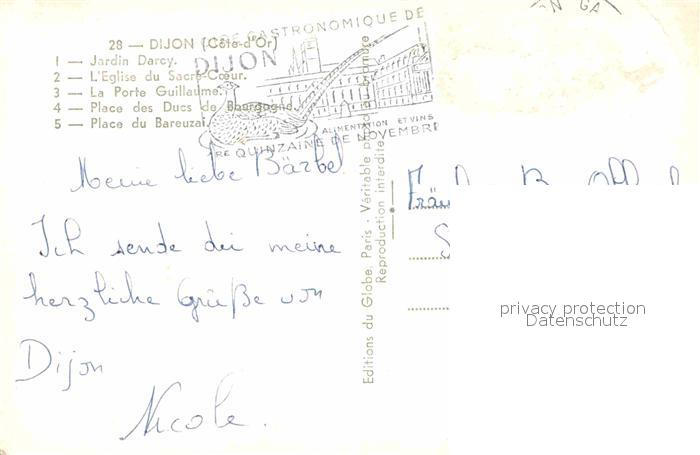 28 — DIJON (Côte-d'Or)
1 — Jardin Darcy.
2 — L'Eglise du Sacré-Cœur.
3 — La Porte Guillaume.
4 — Place des Ducs de Bourgogne.
5 — Place du Bareuzai.
GASTRONOMIQUE DE
DIJON
ALIMENTATION ET VINS
1RE QUINZAINE DE NOVEMBRE
Meine liebe Bärbel
Ich sende dir meine
herzliche Grüße von
Dijon
Nicole.
Editions du Globe, Paris - Véritable photo
Reproduction interdite
Fräu
privacy protection
Datenschutz